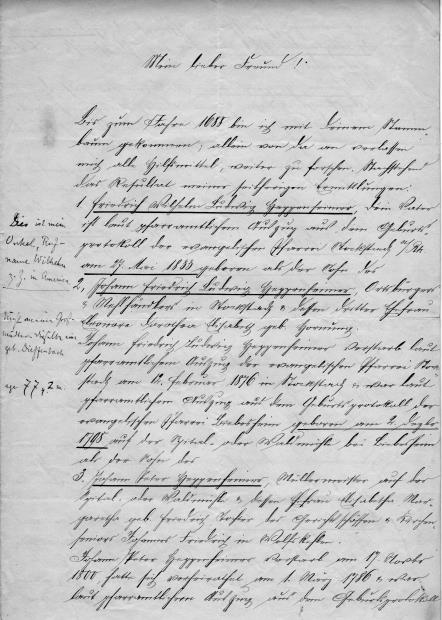 Mein lieber Freund!
Bis zum Jahre 1688 bin ich mit Deinem Stamm
baum gekommen, allein von da an verlassen
mich alle Hilfsmittel, weiter zu forschen. Nachstehend
das Resultat meiner seitherigen Ermittlungen:
1. Friedrich Wilhelm Ludwig Heppenheimer, Dein Vater
ist laut pfarramtlichem Auszug aus dem Geburts
protokoll der evangelischen Pfarrei Stockstadt a/Rh.
am 27. Mai 1833 geboren als der Sohn des
2, Johann Friedrich Ludwig Heppenheimer, Ortsbürgers
& Mehlhändlers in Stockstadt & dessen dritter Ehefrau
Eleonore Dorothea Elisabeth geb. Hornung.
Johann Friedrich Ludwig Heppenheimer verstarb laut
pfarramtlichem Auszug der evangelischen Pfarrei Stock
stadt am 6. Februar 1876 in Stockstadt & war laut
pfarramtlichem Auszug aus dem Geburtsprotokoll der
evangelischen Pfarrei Biebesheim geboren am 2. Dezbr
auf der Spital oder bei Biebesheim
als der Sohn des
3. Johann Peter Heppenheimer, Müllermeister auf der
Spital oder & dessen Ehefrau Elisabetha Mar-
garetha geb. Friedrich Tochter des Gerichtsschöffen & Kirchen
seniors Johannes Friedrich in Wolfskehlen.
Johann Peter Heppenheimer verstarb am 17. Novbr
1800, hatte sich verheirathet am 1. März 1786 & war
laut pfarramtlichem Auszug aus dem Geburtsprotokoll
Dies ist mein
Onkel, Ruf-
name Wilhelm
z. Z. in Amerika
meine Groß-
mutter
geb.